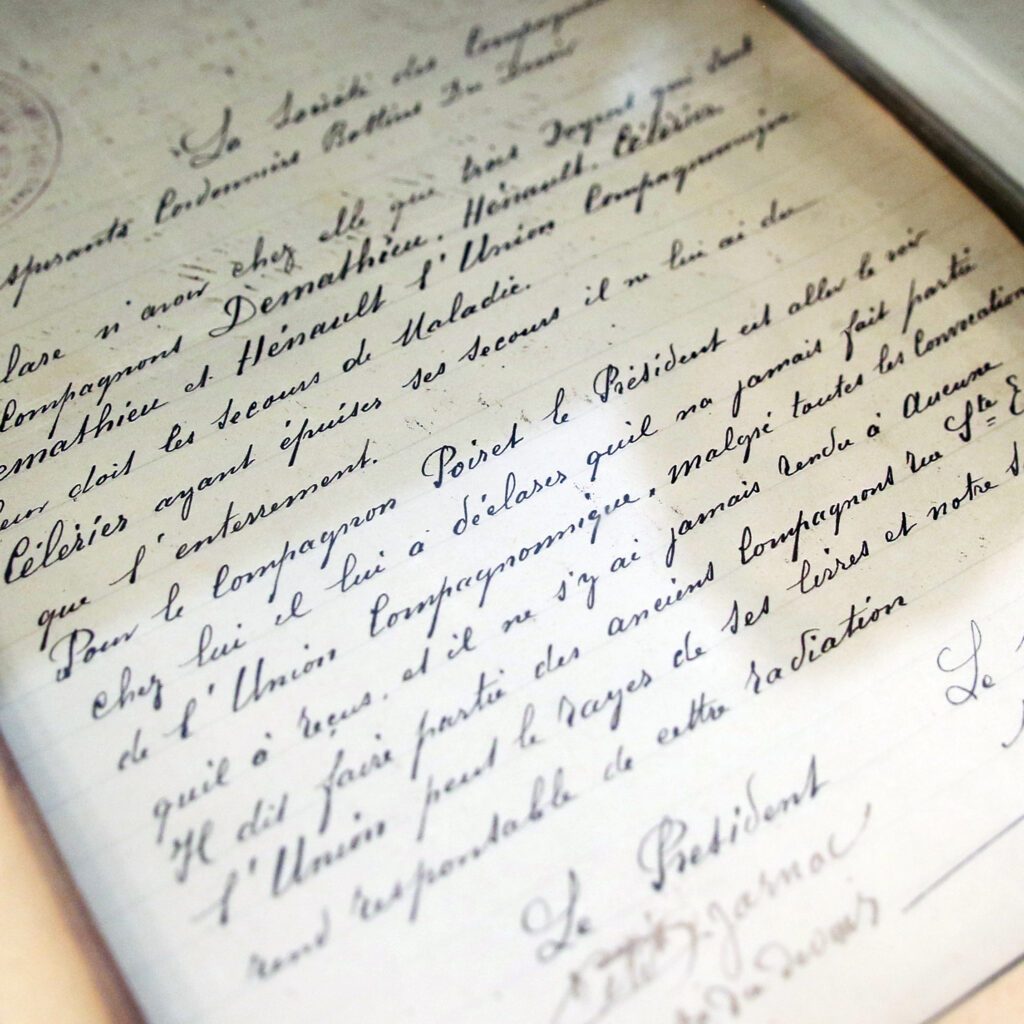 La Société des Compagnons
spirants Cordonniers Bottiers Du Devoir
lare n'avoir chez elle que trois Payent qui sont
Compagnons Demathieu. Hénault. Célérier
emathieu et Hénault l'Union Compagnonnique
leur doit les secours de Maladie.
Célérier ayant épuiser ses secours il ne lui ai du
que l'enterrement.
Pour le Compagnon Poiret le Président est aller le voir
chez lui il lui a déclarer quil na jamais fait partie
de l'Union Compagnonnique, malgré toutes les Convocation
quil à reçus. et il ne s'y ai jamais rendu à Aucune
Il dit faire partie des anciens Compagnons rue Ste E
l'Union peut le rayer de ses livres et notre S
rend responsable de cette radiation
Le
Le Président
Jarnol